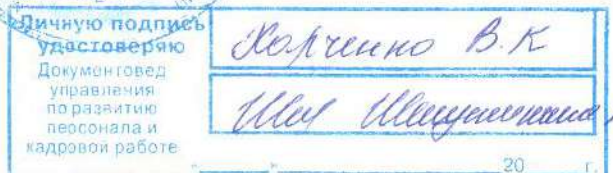 Личную подпись
удостоверяю
Документовед
управления
по развитию
персонала и
кадровой работе
Харченко В.К
20 г.